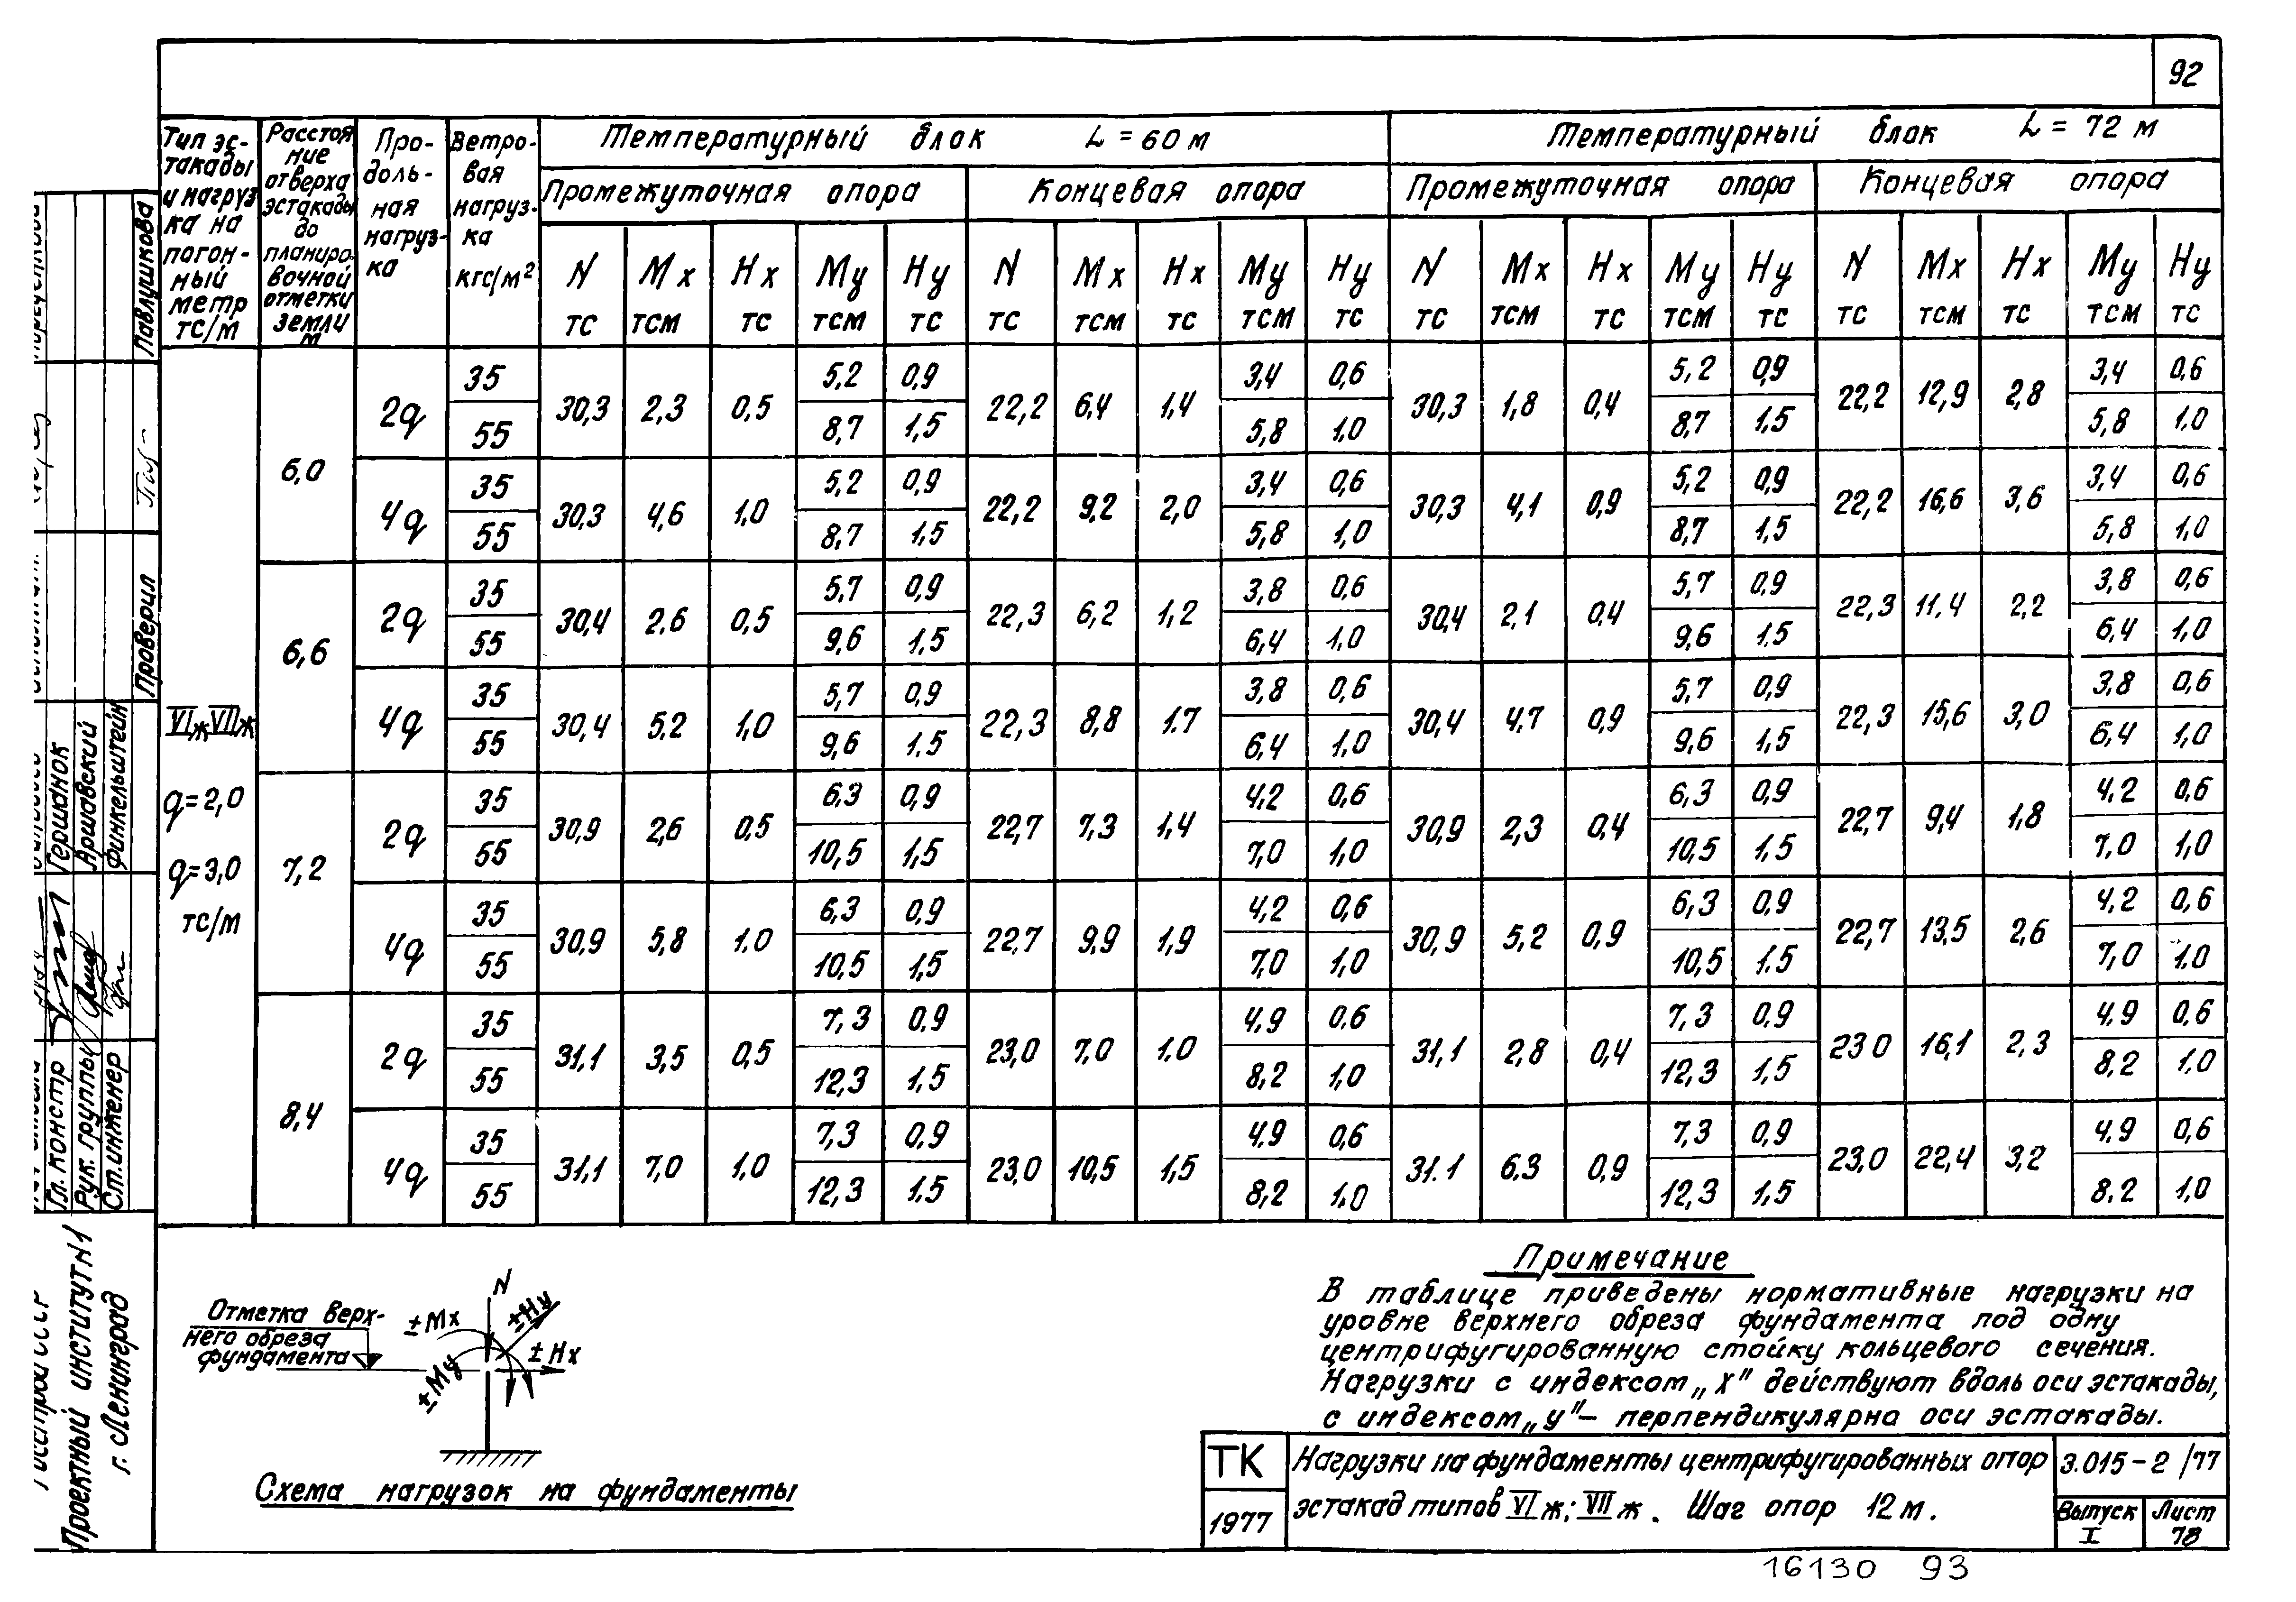 92
Тип эс-
такады
и нагруз
ка на
погон-
ный
метр
тс/м
Расстоя
ние
от верха
эстакады
до
планиро
вочной
отметки
земли
м
Про-
доль-
ная
нагруз-
ка
Ветро-
вая
нагруз-
ка
кгс/м²
Температурный блок L = 60 м
Температурный блок L = 72 м
Промежуточная опора Концевая опора Промежуточная опора Концевая опора
N Mx Hx My Hy N Mx Hx My Hy N Mx Hx My Hy N Mx Hx My Hy
тс тсм тс тсм тс тс тсм тс тсм тс тс тсм тс тсм тс тс тсм тс тсм тс
VIж VIIж
q=2,0
q=3,0
тс/м
6,0
2q 35 5,2 0,9 3,4 0,6 5,2 0,9 3,4 0,6
30,3 2,3 0,5 22,2 6,4 1,4 30,3 1,8 0,4 22,2 12,9 2,8
55 8,7 1,5 5,8 1,0 8,7 1,5 5,8 1,0
4q 35 5,2 0,9 3,4 0,6 5,2 0,9 3,4 0,6
30,3 4,6 1,0 22,2 9,2 2,0 30,3 4,1 0,9 22,2 16,6 3,6
55 8,7 1,5 5,8 1,0 8,7 1,5 5,8 1,0
6,6
2q 35 5,7 0,9 3,8 0,6 5,7 0,9 3,8 0,6
30,4 2,6 0,5 22,3 6,2 1,2 30,4 2,1 0,4 22,3 11,4 2,2
55 9,6 1,5 6,4 1,0 9,6 1.5 6,4 1,0
4q 35 5,7 0,9 3,8 0,6 5,7 0,9 3,8 0,6
30,4 5,2 1,0 22,3 8,8 1.7 30,4 4,7 0,9 22,3 15,6 3,0
55 9,6 1.5 6,4 1,0 9,6 1,5 6,4 1,0
7,2
2q 35 6,3 0,9 4,2 0,6 6,3 0,9 4,2 0,6
30,9 2,6 0,5 22,7 7,3 1,4 30,9 2,3 0,4 22,7 9,4 1,8
55 10,5 1,5 7,0 1,0 10,5 1.5 7,0 1,0
4q 35 6,3 0,9 4,2 0,6 6,3 0,9 4,2 0,6
30,9 5,8 1.0 22.7 9,9 1,9 30,9 5,2 0,9 22,7 13,5 2,6
55 10,5 1,5 7,0 1,0 10,5 1.5 7,0 1.0
8,4
2q 35 7,3 0,9 4,9 0,6 7,3 0,9 4,9 0,6
31,1 3,5 0,5 23,0 7,0 1.0 31,1 2,8 0,4 23 0 16,1 2,3
55 12,3 1,5 8,2 1,0 12,3 1,5 8,2 1,0
4q 35 7,3 0,9 4,9 0,6 7,3 0,9 4,9 0,6
31,1 7,0 1,0 23,0 10,5 1,5 31.1 6.3 0,9 23,0 22,4 3,2
55 12,3 1.5 8,2 1,0 12,3 1,5 8,2 1,0
Отметка верх-
него обреза
фундамента
N
±Mx
±Hy
±Hx
±My
Схема нагрузок на фундаменты
Примечание
В таблице приведены нормативные нагрузки на
уровне верхнего обреза фундамента под одну
центрифугированную стойку кольцевого сечения.
Нагрузки с индексом „x" действуют вдоль оси эстакады,
с индексом „y"– перпендикулярна оси эстакады.
ТК
1977
Нагрузки на фундаменты центрифугированных опор
эстакад типов VI ж; VII ж. Шаг опор 12 м.
3.015-2/77
Выпуск
I
Лист
78
16130 93
Павлушкова
Проверил
Гершанок
Аршавский
Финкельштейн
Гл. констр
Рук. группы
Ст. инженер
Проектный институт N1
г. Ленинград